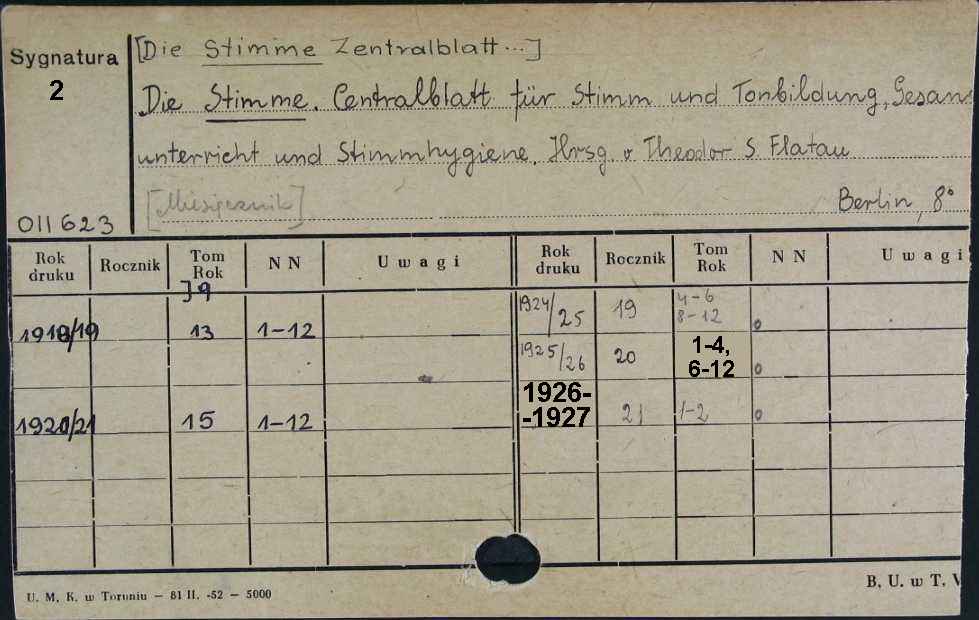 [Die Stimme Zentralblatt...]
Sygnatura
2
Die Stimme. Centralblatt für Stimm und Tonbildung, Gesan
unterricht und Stimmhygiene. Hrsg. v Theodor S. Flatau
[Miesięcznik]
Berlin, 8°
011623
Rok druku Rocznik Tom Rok N N Uwagi Rok druku Rocznik Tom Rok N N Uwagi
1918/19 13 1-12
1924/25 19 4-6 8-12 o
1925/26 20 1-4, 6-12 o
1920/21 15 1-12
1926--1927 21 1-2 o
B. U. w T.
U. M. K. w Toruniu — 81 II. -52 — 5000